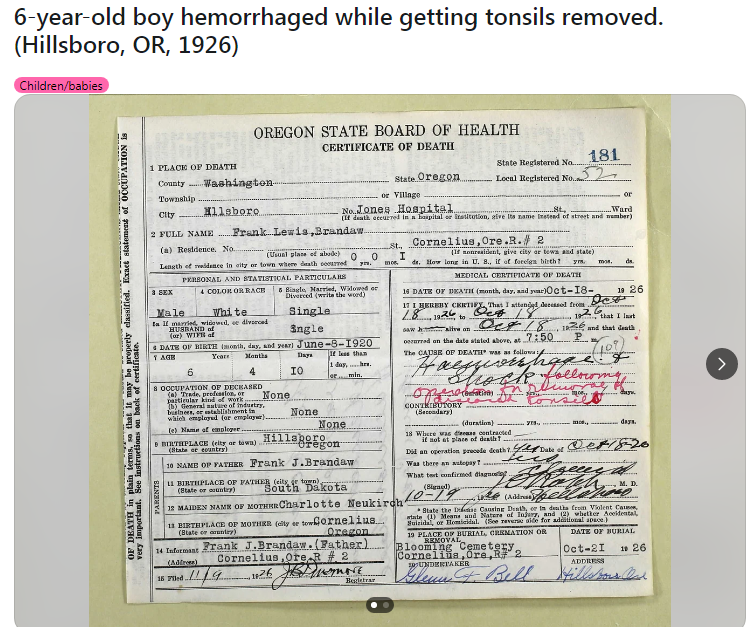 6-year-old boy hemorrhaged while getting tonsils removed.
(Hillsboro, OR, 1926)
Children/babies
OREGON STATE BOARD OF HEALTH
CERTIFICATE OF DEATH
1 PLACE OF DEATH
State Registered No. 181
County Washington State Oregon Local Registered No. 52
Township or Village or
City Hllsboro No. Jones Hospital St., Ward
(If death occurred in a hospital or institution, give its name instead of street and number)
2 FULL NAME Frank Lewis,Brandaw
(a) Residence. No. St., Cornelius,Ore.R.# 2
(Usual place of abode) (If nonresident, give city or town and state)
Length of residence in city or town where death occurred 0 yrs. 0 mos. I ds. How long in U. S. if of foreign birth? yrs. mos. ds.
PERSONAL AND STATISTICAL PARTICULARS
3 SEX 4 COLOR OR RACE 5 Single, Married, Widowed or Divorced (write the word)
Male White Single
5a If married, widowed, or divorced
HUSBAND of
(or) WIFE of
3ngle
6 DATE OF BIRTH (month, day, and year) June-8-1920
7 AGE Years Months Days If less than
1 day, hrs.
or min.
6 4 IO
8 OCCUPATION OF DECEASED
(a) Trade, profession, or
particular kind of work None
(b) General nature of industry,
business, or establishment in
which employed (or employer) None
(c) Name of employer None
9 BIRTHPLACE (city or town) Hillsboro
(State or country) Oregon
PARENTS
10 NAME OF FATHER Frank J.Brandaw
11 BIRTHPLACE OF FATHER (city or town)
(State or country) South Dakota
12 MAIDEN NAME OF MOTHER Charlotte Neukirch
13 BIRTHPLACE OF MOTHER (city or town) Cornelius
(State or country) Oregon
14 Informant Frank J.Brandaw.(Father)
(Address) Cornelius,Ore,R # 2
15 Filed 11/9, 1926 Registrar
MEDICAL CERTIFICATE OF DEATH
16 DATE OF DEATH (month, day, and year) Oct-I8- 19 26
17 I HEREBY CERTIFY, That I attended deceased from Oct
18, 1926, to Oct 18, 1926, that I last
saw h alive on Oct 18, 1926 and that death
occurred on the date stated above, at 7:50 P. m.
The CAUSE OF DEATH* was as follows:
(109)
Haemorrhage &
Shock following
operation in removal of
diseased tonsils
(duration) yrs. mos. days.
CONTRIBUTORY
(Secondary)
(duration) yrs. mos., days.
18 Where was disease contracted
if not at place of death?
Did an operation precede death? yes Date of Oct 18-26
Was there an autopsy?
What test confirmed diagnosis?
(Signed) M. D.
10-19, 1926 (Address) Hillsboro
* State the Disease Causing Death, or in deaths from Violent Causes,
state (1) Means and Nature of Injury, and (2) whether Accidental,
Suicidal, or Homicidal. (See reverse side for additional space.)
19 PLACE OF BURIAL, CREMATION OR REMOVAL DATE OF BURIAL
Blooming Cemetery
Cornelius,Ore,R# 2 Oct-2I 19 26
20 UNDERTAKER ADDRESS
Glenn F Bell Hillsboro Ore
OF DEATH in plain terms, so that it may be properly classified. Exact statement of OCCUPATION is
very important. See instructions on back of certificate.